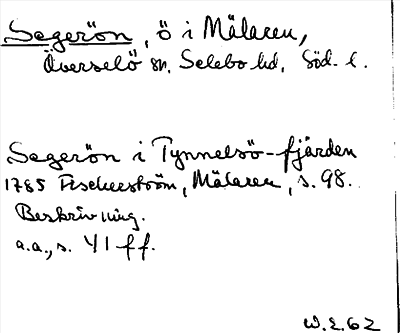 Segerön, ö i Mälaren,
Överselö sn, Selebo hd, Söd. l.
Segerön i Tynnelsö-fjärden
1785 Fischerström, Mälaren, s. 98.
Beskrivning.
a.a., s. 41 ff.
W.E. 62